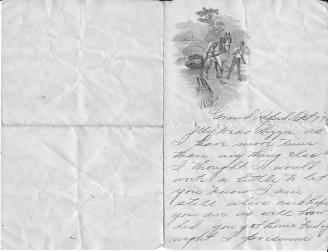 Grand Rapids Oct 7
My Dear Lizzie as
I have more time
than any thing else
I thought I would
write a little to let
you know I am
still alive and hope
you are as well how
did you get home
night I presume